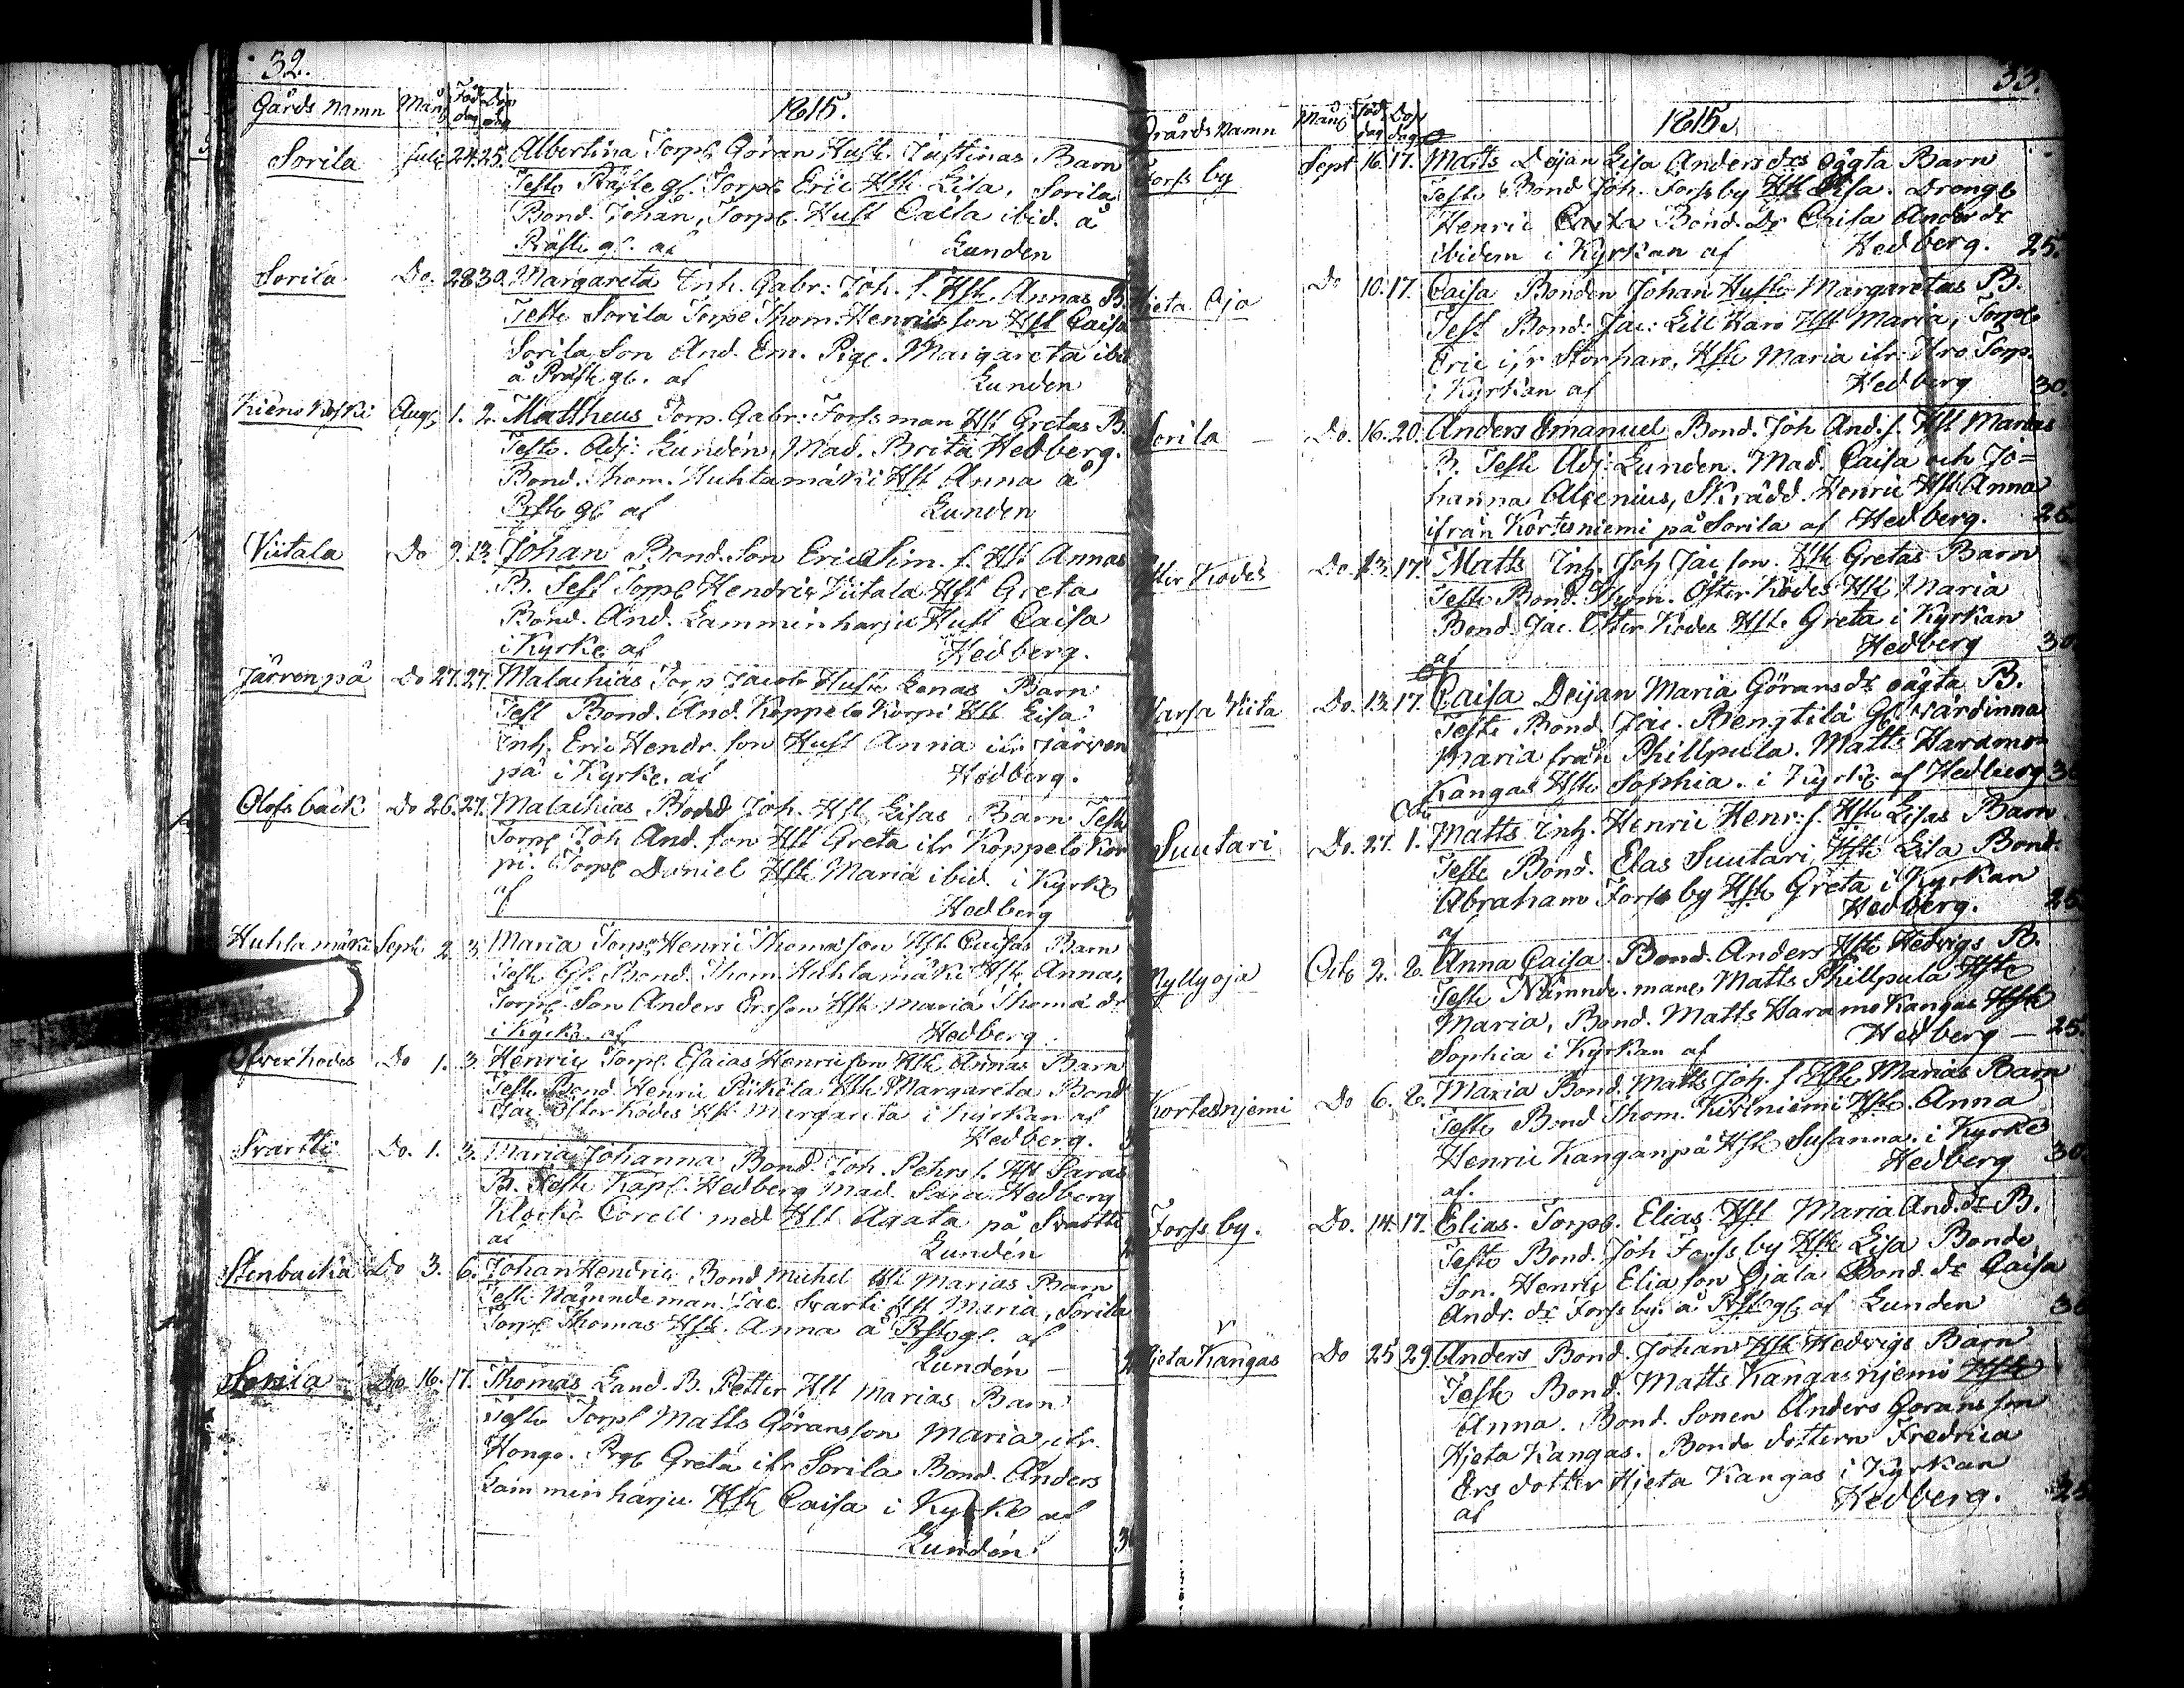 32.
Gårds namn Mån Föd dag Dop dag 1815.
Sorila Julii 24. 25. Albertina Torp. Göran Hust. Justinas Barn
Teste Präste gl. Torp. Eric Hst. Lisa, Sorila
Bond. Johan, Torp. Hust Caisa ibid. å
Präste gl. af Lunden
Sorila Do. 28 30. Margareta Inh. Gabr: Joh. s. Hst. Annas B.
Teste Sorila Torp Thom: Henricsson Hst Caisa
Sorila, Son And. Em. Pig. Margareta ibid
å Präste gl. af Lunden
Kienokoski Aug. 1. 2. Mattheus Torp. Gabr: Forssman Hst Gretas B.
Teste. Adj: Lundén, Mad. Brita Hedberg.
Bond. Thom. Huhtamäki Hst Anna å
Prste gl af Lunden
Viitala Do 9. 13. Johan Bond. Son Eric Sim. s. Hst Annas
B. Test Torp. Hendric Viitala Hst Greta
Bond. And. Lamminharju Hust Caisa
i Kyrk. af Hedberg.
Järvenpä Do 27. 27. Malachias Torp Jacob Hust. Lenas Barn
Test Bond. And. Koppelokorpi Hst Lisa
Inh. Eric Hendr. son Hust Anna ifr. Järven
pä i Kyrk. af Hedberg.
Olofsbäck Do 26. 27. Malachias Bond Joh. Hst. Lisas Barn Teste
Torp. Joh And. son Hst Greta ifr Koppelokor
pi. Torp. Daniel Hst. Maria ibid. i Kyrk.
af Hedberg
Huhtamäki Sept. 2. 3. Maria Torp. Henric Thomasson Hst Caisas Barn
Teste Gl. Bond. Thom. Huhtamäki Hst. Annas,
Torp. Son Anders Ersson Hst. Maria Thomä dr
i Kyrk. af Hedberg.
Öfverkodes Do 1. 3. Henric Torp. Esaias Henricson Hst. Annas Barn
Teste Bond. Henric Rikila Hst. Margareta Bond
Jac. Öfter Kodes Hst. Margareta i Kyrkan af
Hedberg.
Svartti Do. 1. 3. Maria Johanna Bond. Joh. Pehrs s. Hst Saras
B. Teste Kapl. Hedberg Mad. Sara Hedberg
Klock. Corell med Hst Agata på Svartti
af Lundén
Stenbacka Do 3. 6. Johan Hendric Bond Michel Hst Marias Barn
Teste Nämndeman Jac. Svarti Hst Maria, Sorila
Torp. Thomas Hst. Anna å Prste gl. af
Lundén
Sorila Do 16. 17. Thomas Land. B. Petter Hst Marias Barn
Teste Torp. Matts Göransson Maria, ifr.
Hongo. Pig. Greta ifr Sorila Bond. Anders
Lamminharju Hst. Caisa i Kyrk. af
Lundén.
33.
Gårds Namn Mång Föd dag Dop dag 1815.
Forssby Sept 16. 17. Matts Dejan Lisa Anders drs oägta Barn
Teste Bond Joh. Forssby Hst Lisa. Dreng
Henric Bond. Dr Caisa Anders dr
ibidem i Kyrkan af Hedberg. 25.
Hjeta Oja Do 10. 17. Caisa Bonden Johan Hust. Margaretas B.
Test Bond: Jac: Lill Haro Hst Maria, Torp
Eric ifr Storharo, Hst. Maria ifr: Hro Torp.
i Kyrkan af Hedberg 30.
Sorila Do. 16. 20. Anders Emanuel Bond. Joh And. s. Hst Marias
B. Teste Adj: Lunden. Mad. Caisa och Jo=
hanna Alcenius, Skrädd. Henric Hst Anna
ifrån Kortesniemi på Sorila af Hedberg. 25.
Öfter Kodes Do. 13. 17. Matts Inh. Joh Jac son. Hst Gretas Barn
Teste Bond. Thom. Öfter Kodes Hst Maria
Bond. Jac. Öfter Kodes Hst. Greta i Kyrkan
af Hedberg 30.
Harsa Viita Do. 13. 17. Caisa Deijan Maria Görans dr oägta B.
Teste Bond. Jac. Bengtilä Gl. värdinna
Maria från Phillpula. Matts Haramo
Kangas Hst. Sophia. i Kyrk. af Hedberg 30
Suutari Do. 27. Octr 1. Matts Inh. Henric Henr: s. Hst. Lisas Barn
Teste Bond. Elas Suutari Hst. Lisa Bond.
Abraham Forssby Hst. Greta i Kyrkan
af Hedberg. 25.
Myllyoja Octb 2. 8. Anna Caisa Bond. Anders Hst. Hedvigs B.
Teste Nämnde. man. Matts Phillpula Hst.
Maria, Bond. Matts Haramo Kangas Hst.
Sophia i Kyrkan af Hedberg — 25.
Kortesnjemi Do 6. 8. Maria Bond. Matts Joh. s. Hst. Marias Barn
Teste Bond Thom. Hst. Anna
Henric Kanganpä Hst. Susanna i Kyrk.
af. Hedberg 30.
Forssby. Do. 14. 17. Elias. Torp. Elias Hst Maria And. dr B.
Teste Bond. Joh Forssby Hst. Lisa Bonde
Son. Henric Elia son Ojala Bond. dr Caisa
Andr. dr Forssby. å Prste gl. af Lunden 30
Hjeta Kangas Do 25 29. Anders Bond. Johan Hst Hedvigs Barn
Teste Bond. Matts Kangasnjemi Hst.
Anna. Bond. Sonen Anders Göransson
Hjeta Kangas. Bonde dottern Fredrica
Ers dotter Hjeta Kangas i Kyrkan
af Hedberg. 25.